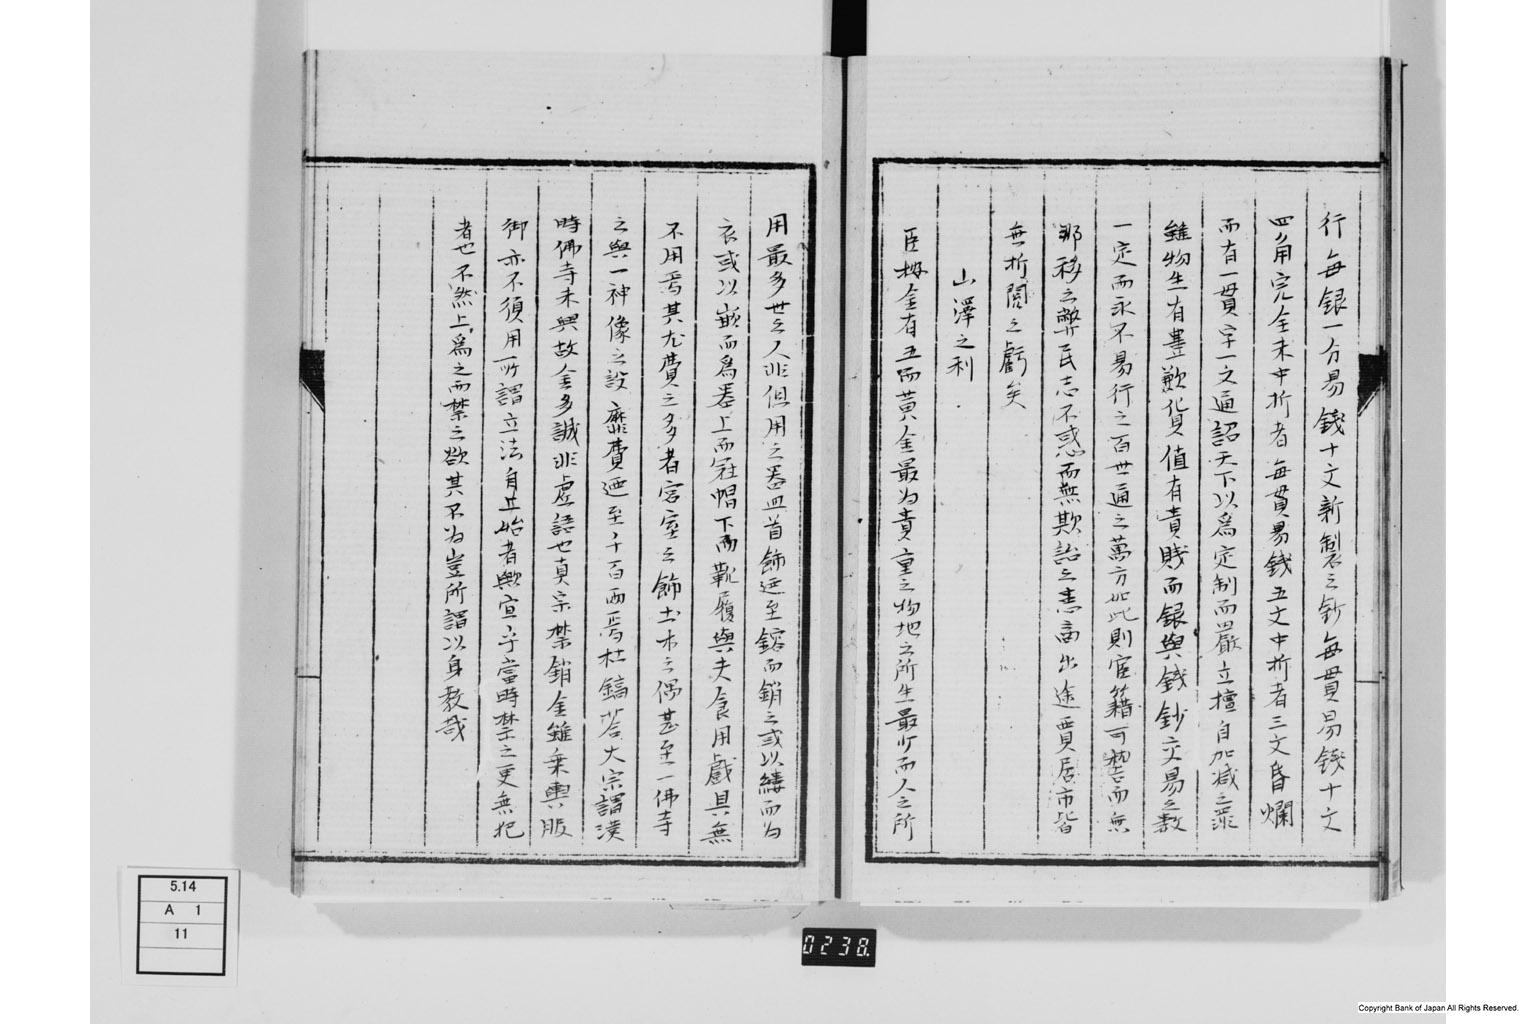 行每銀一分易錢十文新製之鈔每貫易錢十文
四角完全未中折者每貫易錢五文中折者三文昏爛
而有一貫字一文通詔天下以為定制而嚴立擅自加減之罪
雖物生有豊歉貨值有貴賤而銀與錢鈔交易之數
一定而永不易行之百世通之萬方如此則官籍可稽而無
那移之弊民志不惑而無欺詒之患商出途賈居市皆
無折閲之虧矣
山澤之利
臣按金有五而黄金最为貴重之物地之所生最少而人之所
用最多世之人非但用之器皿首飾延至鎔而銷之或以縷而为
衣或以嵌而爲器上而冠帽下而靴履與夫食用戲具無
不用焉其尤費之多者宮室之飾土木之偶甚至一佛寺
之與一神像之設靡費延至千百兩焉杜鎬荅太宗謂漢
時佛寺未興故金多誠非虚語也真宗禁銷金雖乗輿服
御亦不須用所謂立法自上始者歟宜乎當時禁之更無犯
者也不然上爲之而禁之欲其不为豈所謂以身教哉
5.14
A 1
11
0238.
Copyright Bank of Japan All Rights Reserved.